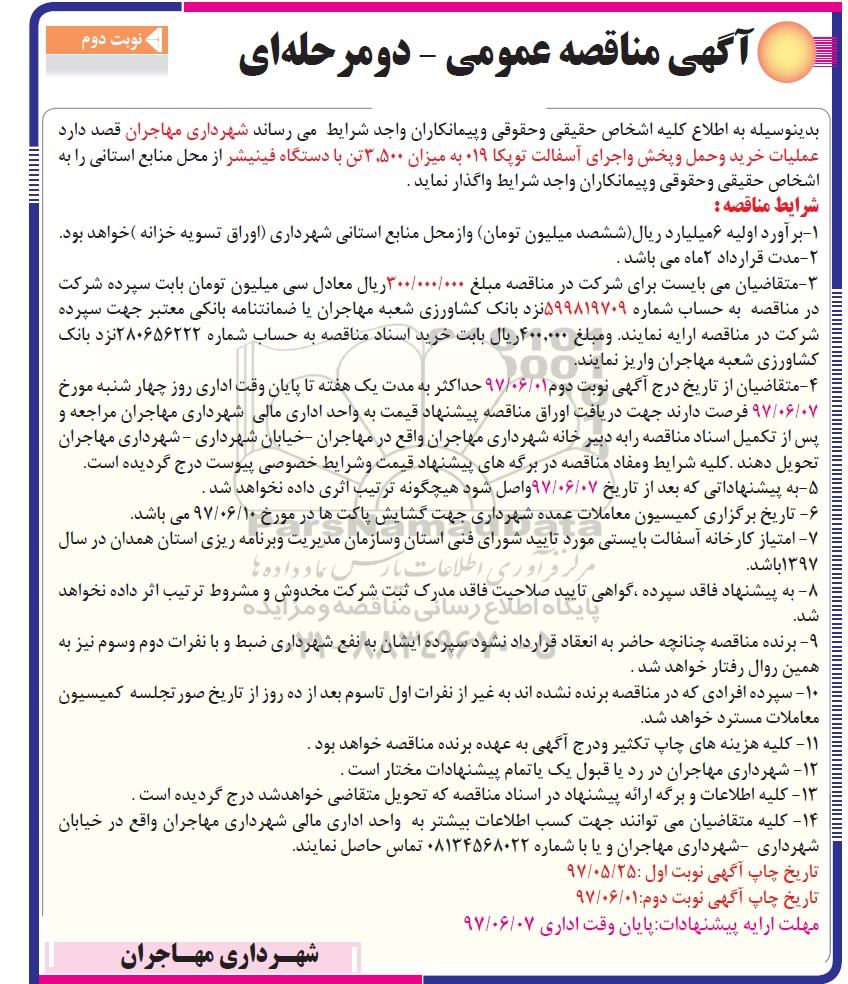 نوبت دوم
آگهی مناقصه عمومی - دومرحله‌ای
بدینوسیله به اطلاع کلیه اشخاص حقیقی وحقوقی وپیمانکاران واجد شرایط می رساند شهرداری مهاجران قصد دارد
عملیات خرید وحمل وپخش واجرای آسفالت توپکا ۰۱۹ به میزان ۳٬۵۰۰تن با دستگاه فینیشر از محل منابع استانی را به
اشخاص حقیقی وحقوقی وپیمانکاران واجد شرایط واگذار نماید .
شرایط مناقصه :
۱-برآورد اولیه ۶میلیارد ریال(ششصد میلیون تومان) وازمحل منابع استانی شهرداری (اوراق تسویه خزانه )خواهد بود.
۲-مدت قرارداد ۲ماه می باشد .
۳-متقاضیان می بایست برای شرکت در مناقصه مبلغ ۳۰۰/۰۰۰/۰۰۰ریال معادل سی میلیون تومان بابت سپرده شرکت
در مناقصه به حساب شماره ۵۹۹۸۱۹۷۰۹نزد بانک کشاورزی شعبه مهاجران یا ضمانتنامه بانکی معتبر جهت سپرده
شرکت در مناقصه ارایه نمایند. ومبلغ ۴۰۰.۰۰۰ریال بابت خرید اسناد مناقصه به حساب شماره ۲۸۰۶۵۶۲۲۲نزد بانک
کشاورزی شعبه مهاجران واریز نمایند.
۴-متقاضیان از تاریخ درج آگهی نوبت دوم۹۷/۰۶/۰۱ حداکثر به مدت یک هفته تا پایان وقت اداری روز چهار شنبه مورخ
۹۷/۰۶/۰۷ فرصت دارند جهت دریافت اوراق مناقصه پیشنهاد قیمت به واحد اداری مالی شهرداری مهاجران مراجعه و
پس از تکمیل اسناد مناقصه رابه دبیر خانه شهرداری مهاجران واقع در مهاجران -خیابان شهرداری -شهرداری مهاجران
تحویل دهند .کلیه شرایط ومفاد مناقصه در برگه های پیشنهاد قیمت وشرایط خصوصی پیوست درج گردیده است.
۵-به پیشنهاداتی که بعد از تاریخ ۹۷/۰۶/۰۷واصل شود هیچگونه ترتیب اثری داده نخواهد شد .
۶- تاریخ برگزاری کمیسیون معاملات عمده شهرداری جهت گشایش پاکت ها در مورخ ۹۷/۰۶/۱۰ می باشد.
۷- امتیاز کارخانه آسفالت بایستی مورد تایید شورای فنی استان وسازمان مدیریت وبرنامه ریزی استان همدان در سال
۱۳۹۷باشد.
۸- به پیشنهاد فاقد سپرده ،گواهی تایید صلاحیت فاقد مدرک ثبت شرکت مخدوش و مشروط ترتیب اثر داده نخواهد
شد.
۹- برنده مناقصه چنانچه حاضر به انعقاد قرارداد نشود سپرده ایشان به نفع شهرداری ضبط و با نفرات دوم وسوم نیز به
همین روال رفتار خواهد شد .
۱۰- سپرده افرادی که در مناقصه برنده نشده اند به غیر از نفرات اول تاسوم بعد از ده روز از تاریخ صورتجلسه کمیسیون
معاملات مسترد خواهد شد.
۱۱- کلیه هزینه های چاپ تکثیر ودرج آگهی به عهده برنده مناقصه خواهد بود .
۱۲- شهرداری مهاجران در رد یا قبول یک یاتمام پیشنهادات مختار است .
۱۳- کلیه اطلاعات و برگه ارائه پیشنهاد در اسناد مناقصه که تحویل متقاضی خواهدشد درج گردیده است .
۱۴- کلیه متقاضیان می توانند جهت کسب اطلاعات بیشتر به واحد اداری مالی شهرداری مهاجران واقع در خیابان
شهرداری -شهرداری مهاجران و یا با شماره ۰۸۱۳۴۵۶۸۰۲۲ تماس حاصل نمایند.
تاریخ چاپ آگهی نوبت اول :۹۷/۰۵/۲۵
تاریخ چاپ آگهی نوبت دوم:۹۷/۰۶/۰۱
مهلت ارایه پیشنهادات:پایان وقت اداری ۹۷/۰۶/۰۷
شهرداری مهاجران
ParsNamadData
مرکز فرآوری اطلاعات پارس نماد داده ها
پایگاه اطلاع رسانی مناقصه و مزایده